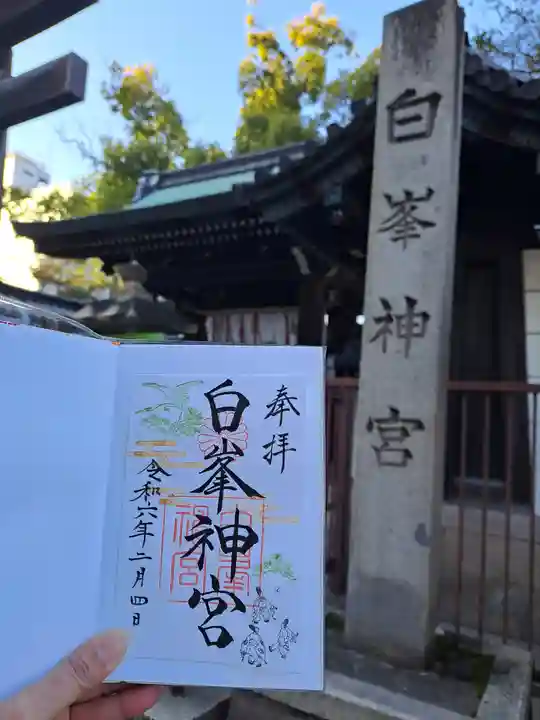 白峯神宮
奉拝
白峯神宮
令和六年二月四日